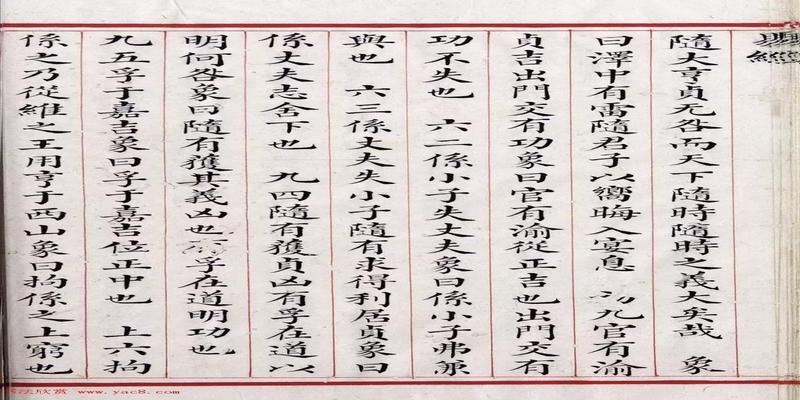 易經
隨大亨貞无咎而天下隨時隨時之義大矣哉 象
曰澤中有雷隨君子以嚮晦入宴息 初九官有渝
貞吉出門交有功象曰官有渝從正吉也出門交有
功不失也 六二係小子失丈夫象曰係小子弗兼
與也 六三係丈夫失小子隨有求得利居貞象曰
係丈夫志舍下也 九四隨有獲貞凶有孚在道以
明何咎象曰隨有獲其義凶也有孚在道明功也
九五孚于嘉吉象曰孚于嘉吉位正中也 上六拘
係之乃從維之王用亨于西山象曰拘係之上窮也
法欣赏 www.yac8.com